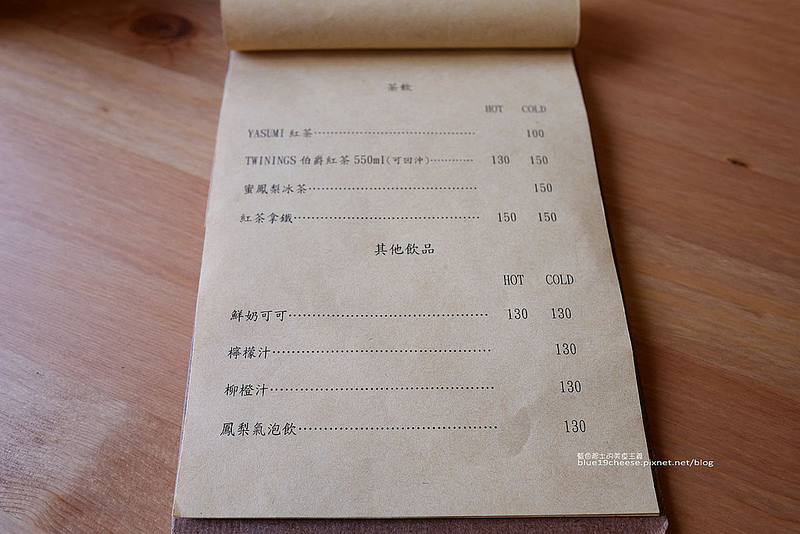 茶飲
HOT COLD
YASUMI 紅茶 100
TWININGS 伯爵紅茶 550ml(可回沖) 130 150
蜜鳳梨冰茶 150
紅茶拿鐵 150 150
其他飲品
HOT COLD
鮮奶可可 130 130
檸檬汁 130
柳橙汁 130
鳳梨氣泡飲 130
藍色起士的美食主義
blue19cheese.pixnet.net/blog